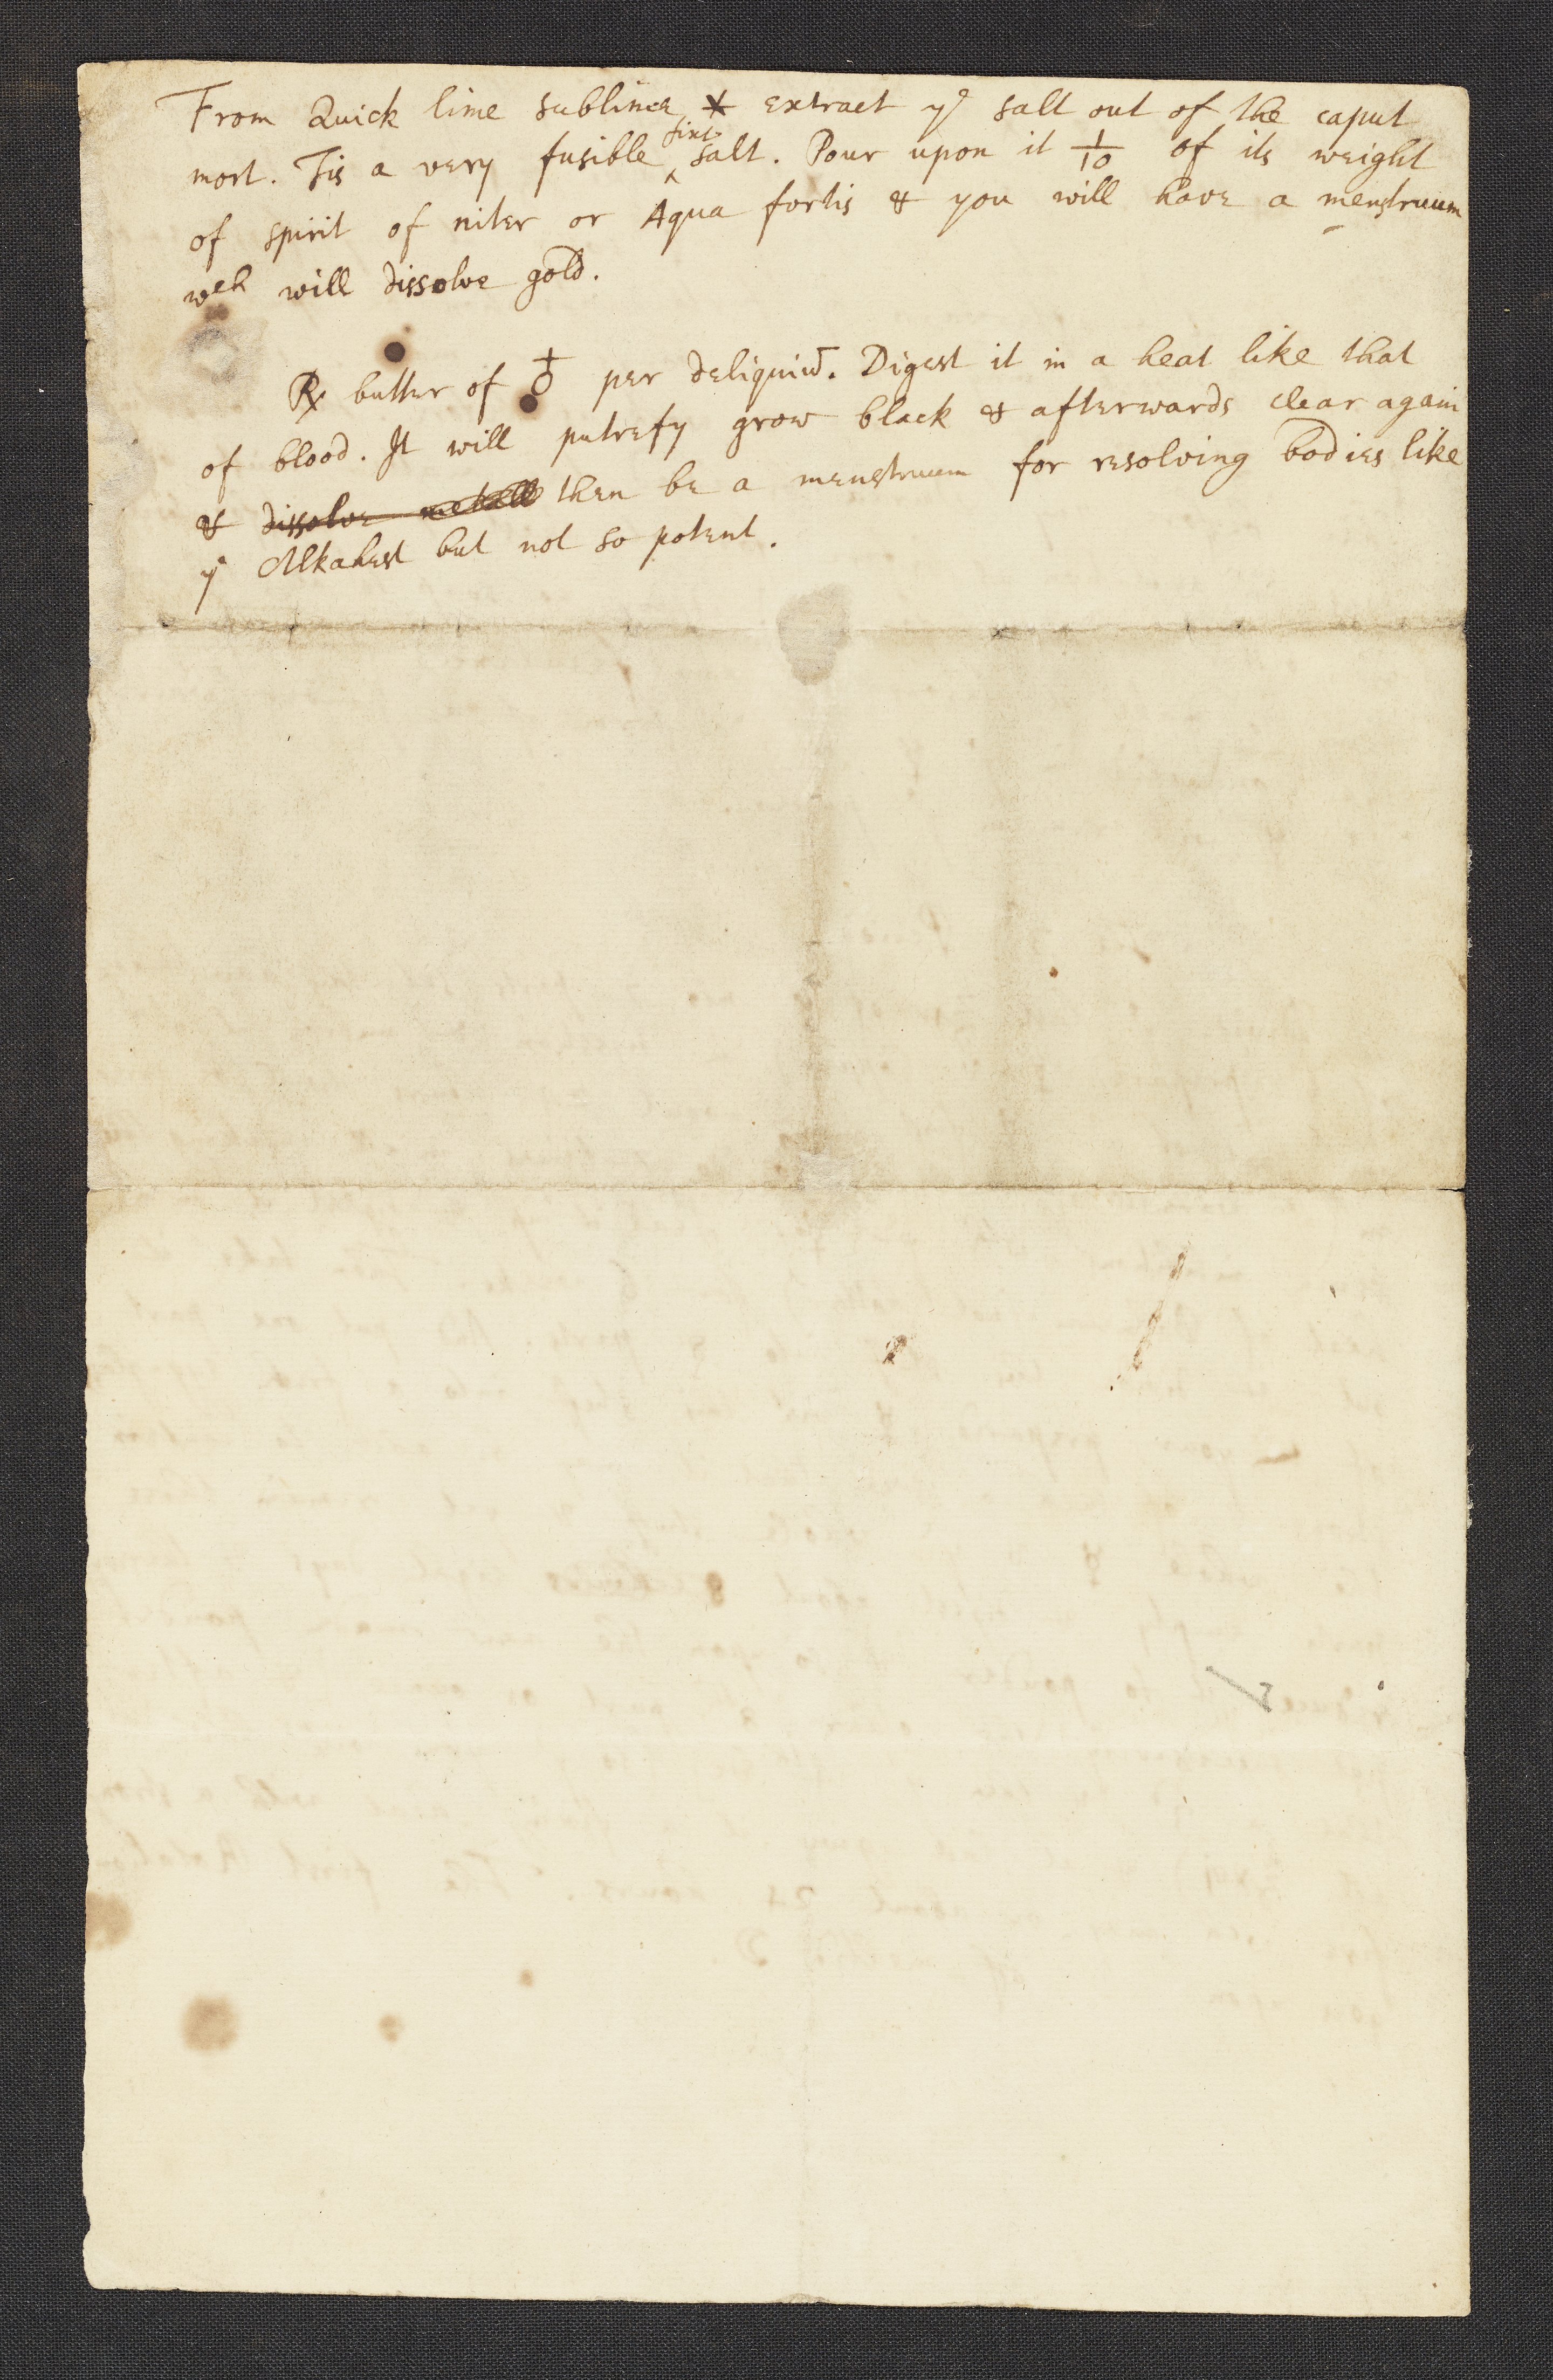 From Quick lime sublime ✱ extract yᵉ salt out of the caput
mort. Tis a very fusible fixt salt. Pour upon it 1/10 of its weight
of spirit of niter or Aqua fortis & you will have a menstruum
wᶜʰ will dissolve gold.
℞ butter of ♁ per deliquiū. Digest it in a heat like that
of blood. It will putrefy grow black & afterwards clear again
& dissolve metall then be a menstruum for resolving bodies like
yᵉ Alkahest but not so potent.